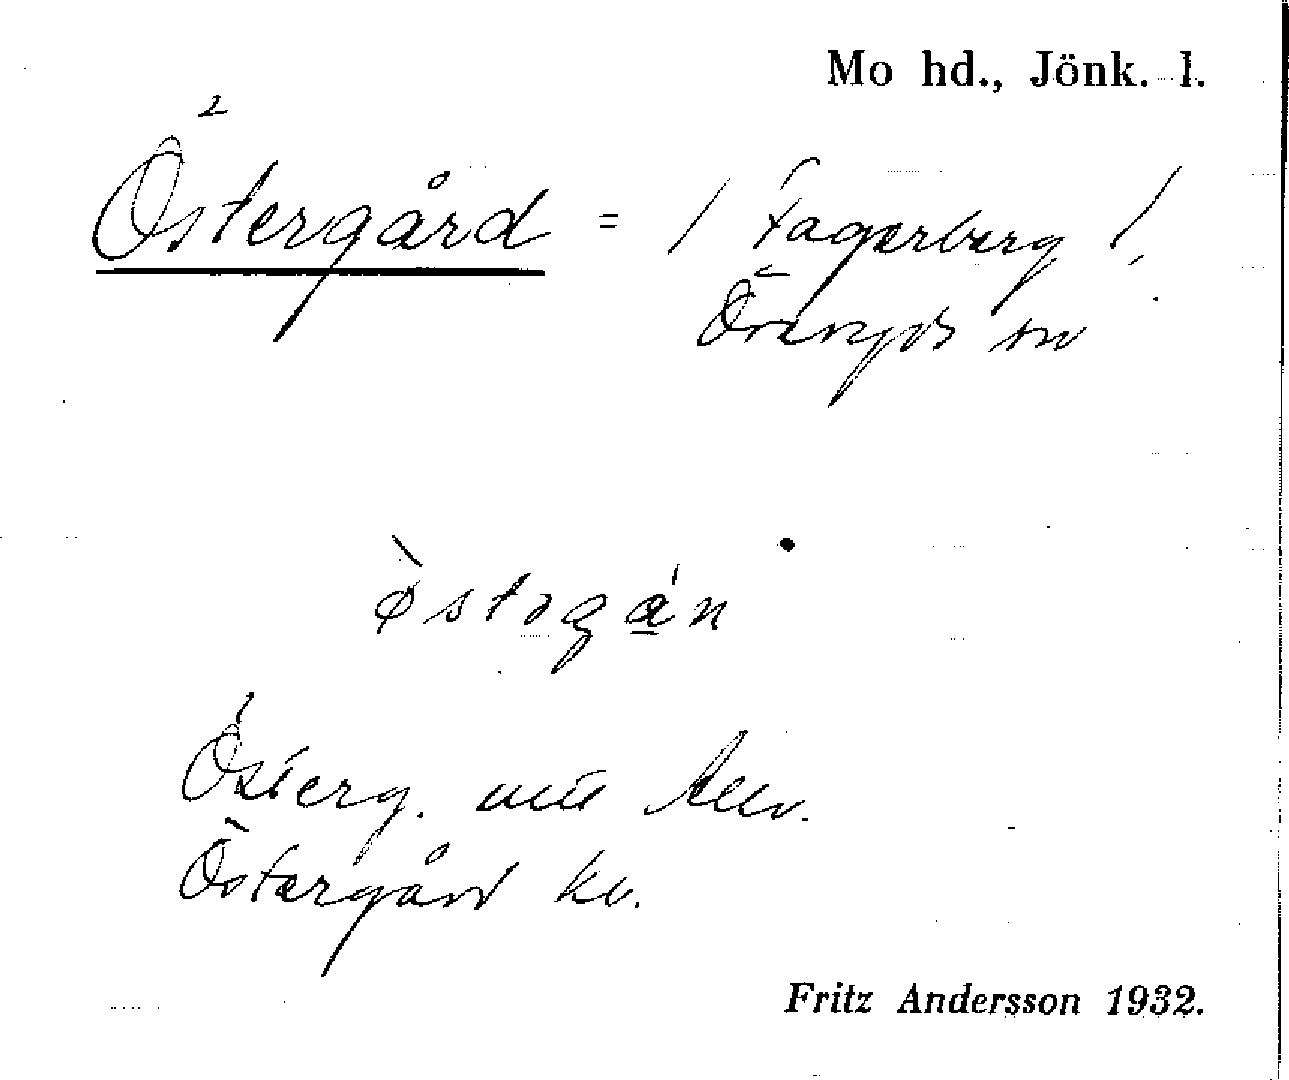 Mo hd., Jönk. l.
2
Östergård = / Fagerberg /
Öreryds sn
ø̀stəgán
Österg. utb
Östergård kv.
Fritz Andersson 1932.